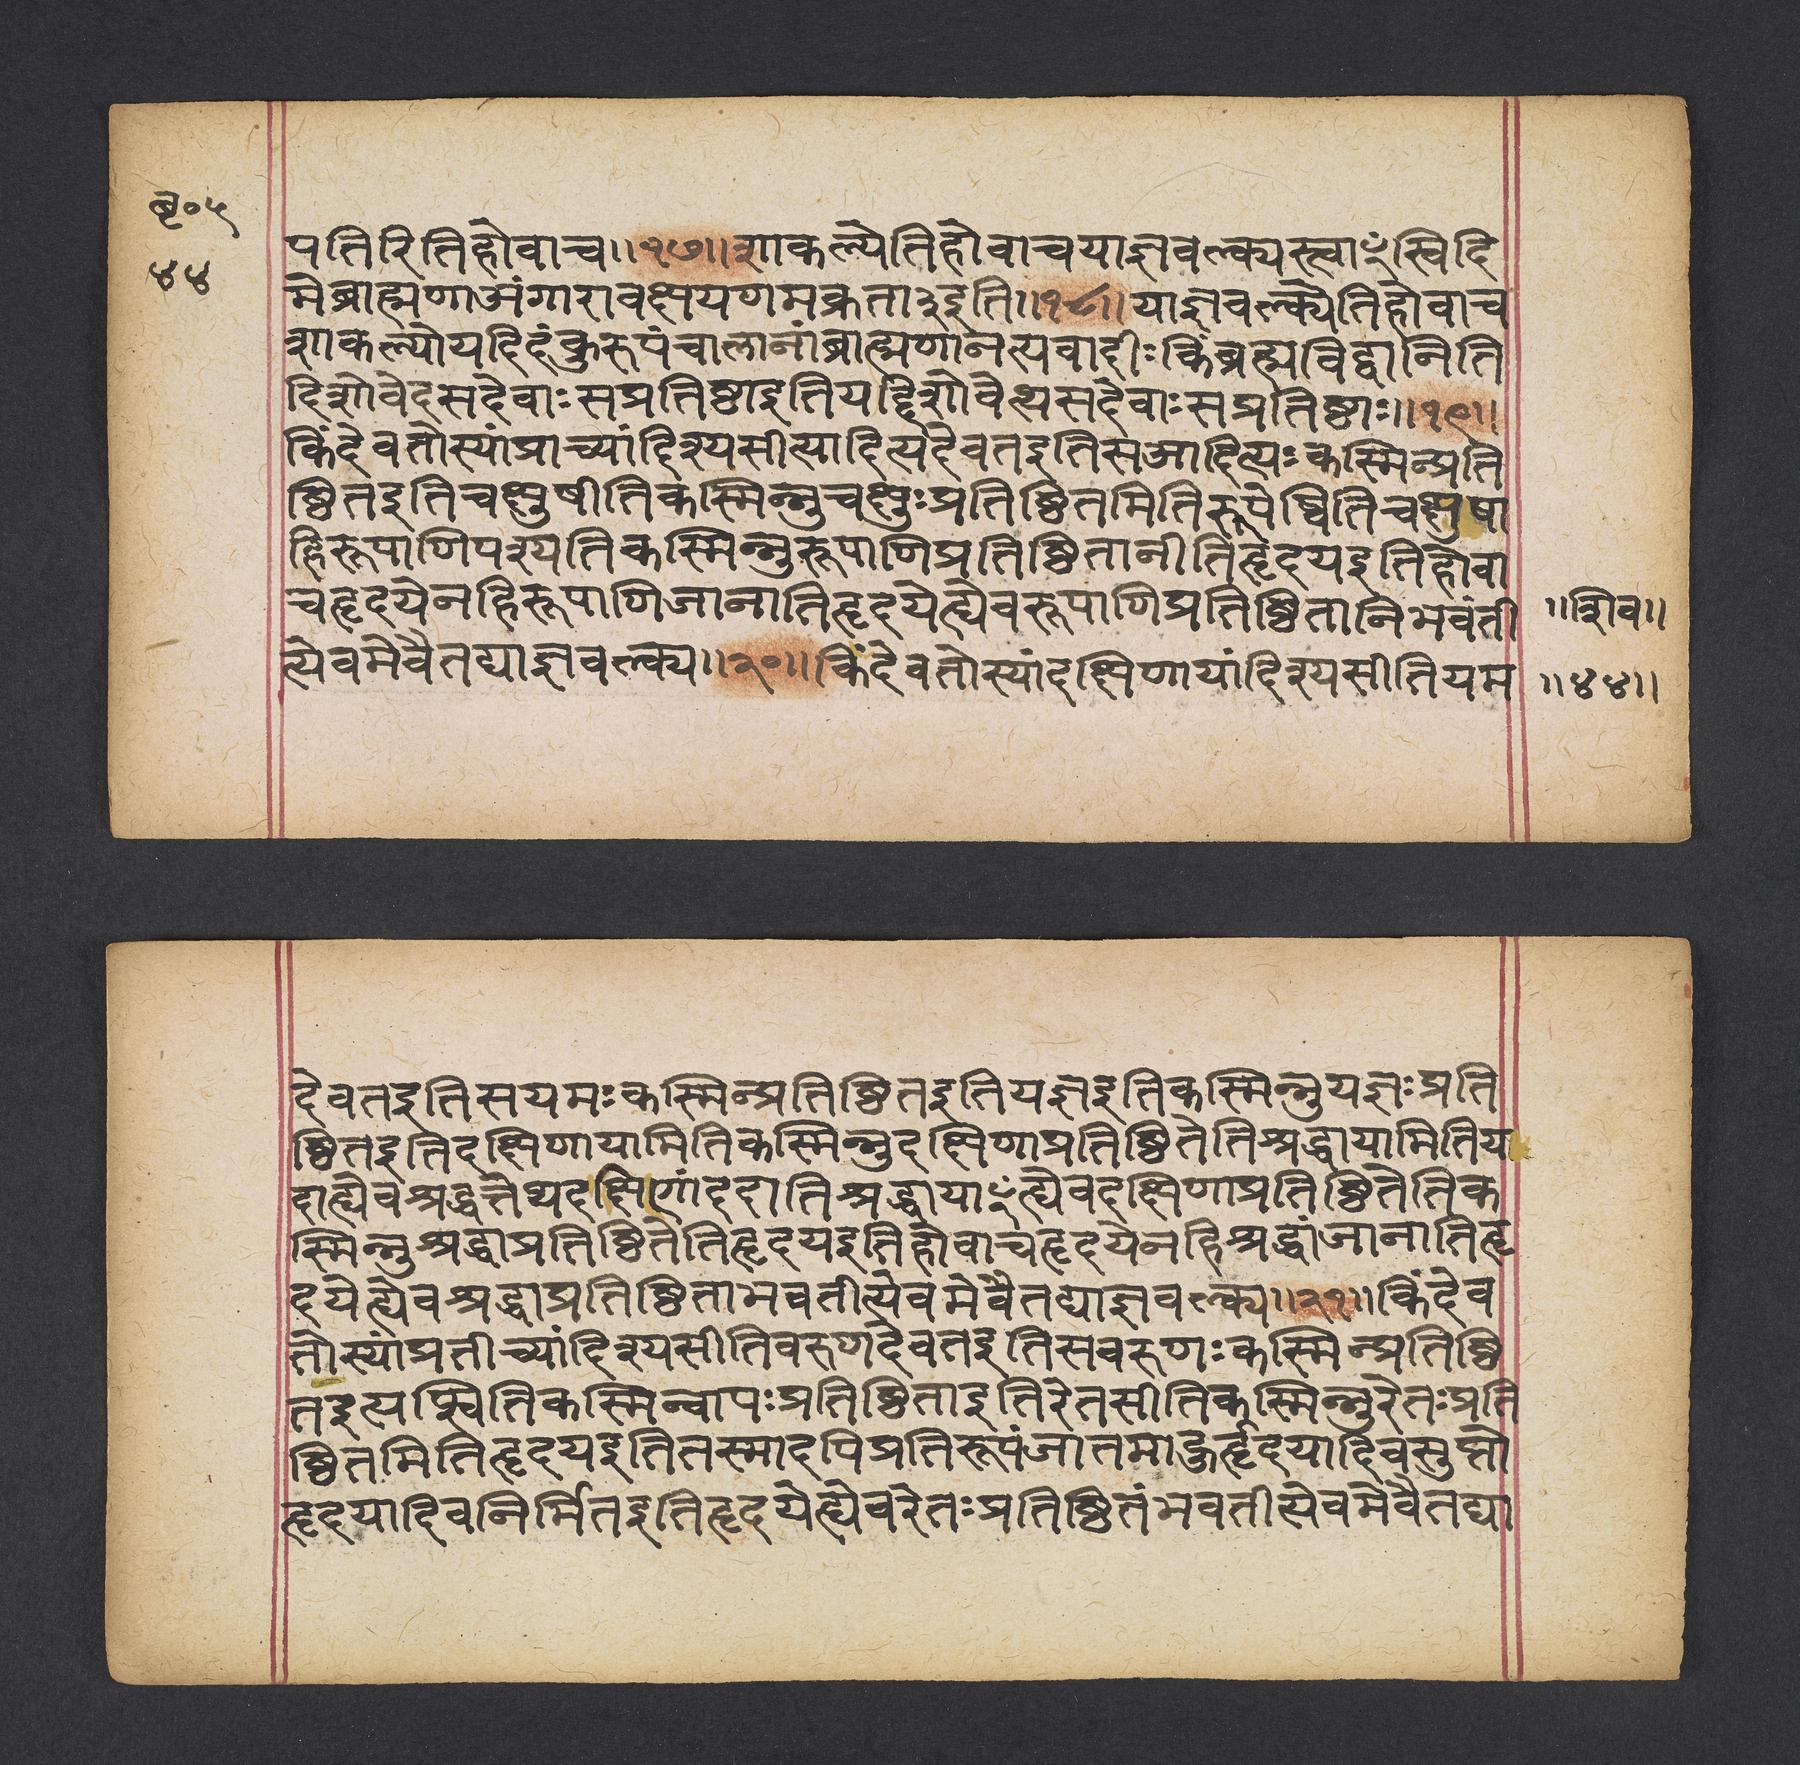 बृ०५
४४
पतिरितिहोवाच॥१७॥शाकल्येतिहोवाचयाज्ञवल्क्यस्त्वाꣳस्विदि
मेब्राह्मणाअंगारावक्षयणमक्रता३इति॥१८॥याज्ञवल्क्येतिहोवाच
शाकल्योयदिदंकुरुपंचालानांब्राह्मणानत्यवादीःकिंब्रह्मविद्वानिति
दिशोवेदसदेवाःसप्रतिष्ठाइतियद्दिशोवेत्थसदेवाःसप्रतिष्ठाः॥१९॥
किंदेवतोस्यांप्राच्यांदिश्यसीत्यादित्यदेवतइतिसआदित्यःकस्मिन्प्रति
ष्ठितइतिचक्षुषीतिकस्मिन्नुचक्षुःप्रतिष्ठितमितिरूपेष्वितिचक्षुषा
हिरूपाणिपश्यतिकस्मिन्नुरूपाणिप्रतिष्ठितानीतिहृदयइतिहोवा
चहृदयेनहिरूपाणिजानातिहृदयेह्येवरूपाणिप्रतिष्ठितानिभवंती
॥शिव॥
त्येवमेवैतद्याज्ञवल्क्य॥२०॥किंदेवतोस्यांदक्षिणायांदिश्यसीतियम
॥४४॥
देवतइतिसयमःकस्मिन्प्रतिष्ठितइतियज्ञइतिकस्मिन्नुयज्ञःप्रति
ष्ठितइतिदक्षिणायामितिकस्मिन्नुदक्षिणाप्रतिष्ठितेतिश्रद्धायामितिय
दाह्येवश्रद्धत्तेथदक्षिणांददातिश्रद्धायाꣳह्येवदक्षिणाप्रतिष्ठितेतिक
स्मिन्नुश्रद्धाप्रतिष्ठितेतिहृदयइतिहोवाचहृदयेनहिश्रद्धांजानातिहृ
दयेह्येवश्रद्धाप्रतिष्ठिताभवतीत्येवमेवैतद्याज्ञवल्क्य॥२१॥किंदेव
तोस्यांप्रतीच्यांदिश्यसीतिवरुणदेवतइतिसवरुणःकस्मिन्प्रतिष्ठि
तइत्यप्स्वितिकस्मिन्वापःप्रतिष्ठिताइतिरेतसीतिकस्मिन्नुरेतःप्रति
ष्ठितमितिहृदयइतितस्मादपिप्रतिरूपंजातमाहुर्हृदयादिवसुप्तो
हृदयादिवनिर्मितइतिहृदयेह्येवरेतःप्रतिष्ठितंभवतीत्येवमेवैतद्या